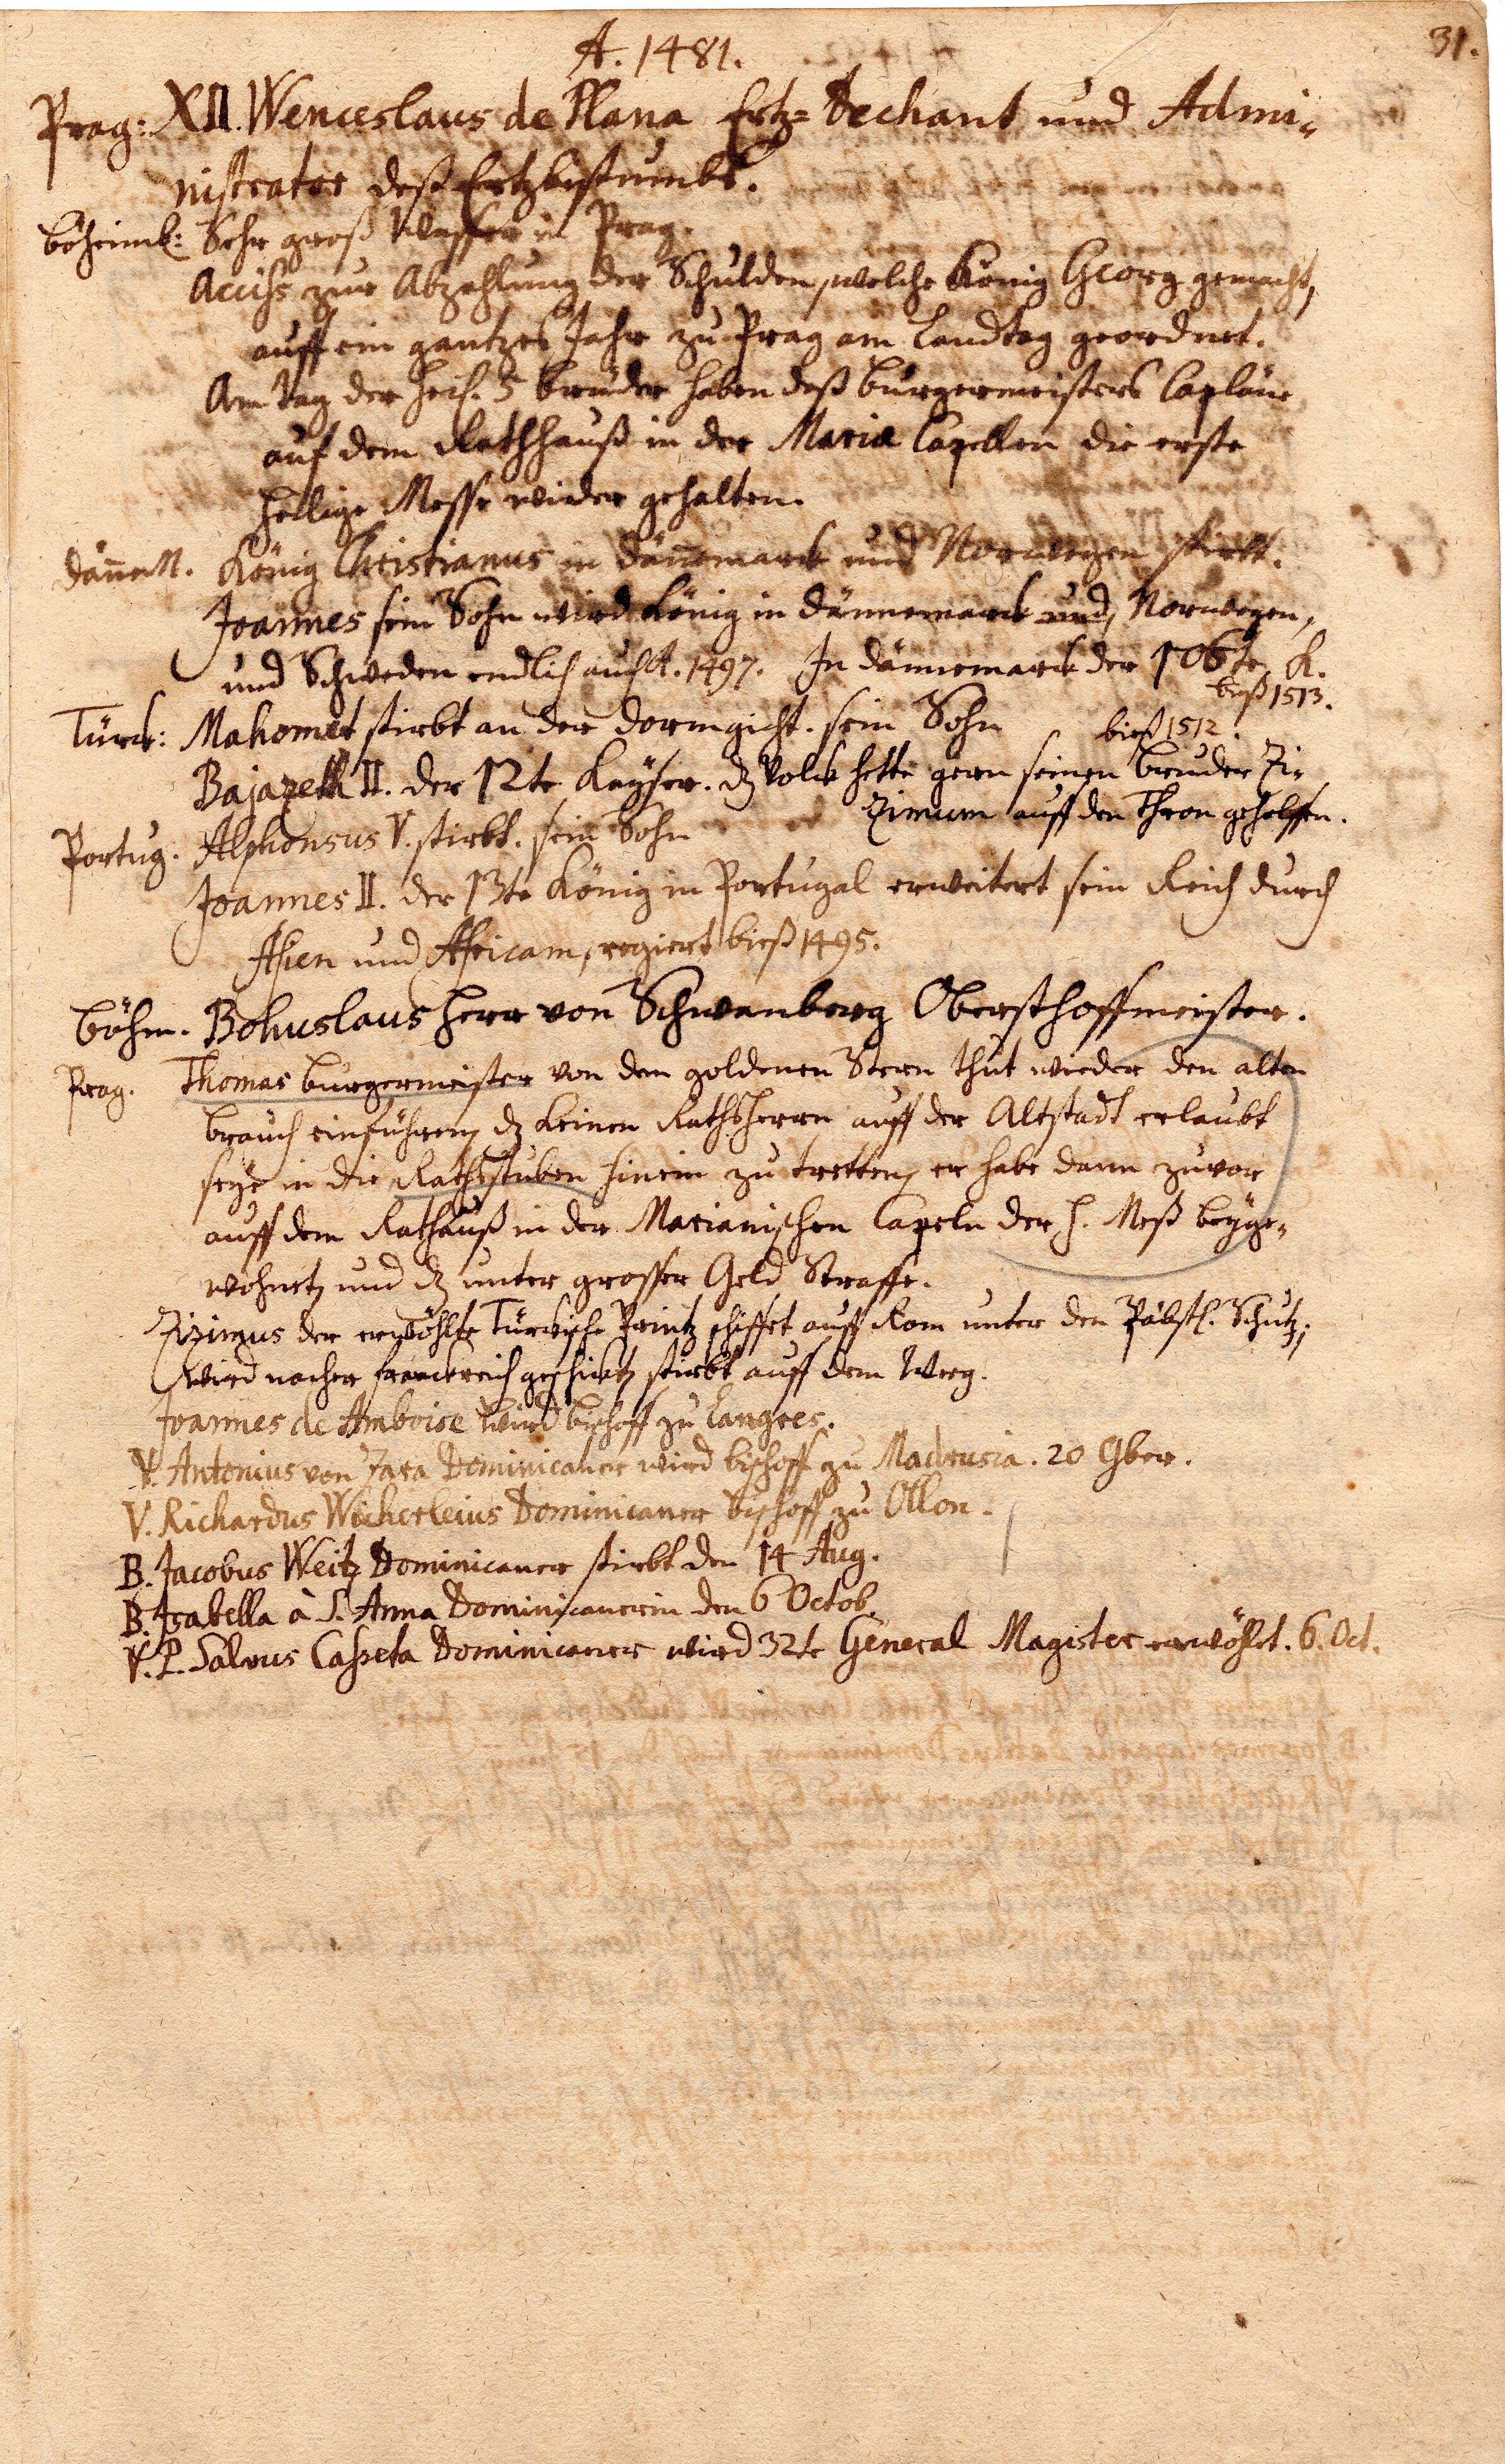 31.
A. 1481.
Prag: XII. Wenceslaus de Plana Ertz=Dechant und Admi=
nistrator deß Ertzbistumbs.
Böheimb: Sehr groß Wasser in Prag.
Acciß zur Abzahlung der Schulden, welche König Georg gemacht,
auff ein gantzes Jahr zu Prag am Landtag geordnet.
Am Tag der heil. 5 Brüder haben deß Burgermeisters Capläne
auf dem Rathhauß in der Mariæ Capellen die erste
heilige Messe wieder gehalten.
Dännem. König Christianus in Dännemarck und Norwegen stirbt.
Joannes sein Sohn wird König in Dännemarck und Norwegen,
und Schweden endlich auch A. 1497. In Dännemarck der 106te K.
bieß 1513.
Türck: Mahomet stirbt an der Darmgicht. sein Sohn bieß 1512.
Bajazeth II. der 12te Kayser. dz Volck hette gern seinen Bruder Zi-
zimum auff den Thron geholffen.
Portug. Alphonsus V. stirbt. sein Sohn
Joannes II. der 13te König in Portugal erweitert sein Reich durch
Asien und Africam, regiert bieß 1495.
Böhm. Bohuslaus Herr von Schwanberg Obersthoffmeister.
Prag. Thomas Burgermeister von dem goldenen Stern thut wieder den alten
brauch einführen, dz keinen Rathsherrn auff der Altstadt erlaubt
seye in die Rathsstuben hinein zu tretten, er habe dann zuvor
auff dem Rathauß in der Marianischen Capeln der h. Meß beyge=
wohnet, und dz unter grosser Geld Straffe.
Zizimus der erwöhlte Türckische Printz schiffet auff Rom unter den Päbstl. Schutz,
wird nacher Franckreich geschickt, stirbt auff dem Weeg.
Joannes de Amboise wird Bischoff zu Langres.
V. Antonius von Zara Dominicaner wird Bischoff zu Madrusia. 20 9ber.
V. Richardus Wicherleius Dominicaner Bischoff zu Ollon.
B. Jacobus Weitz Dominicaner stirbt den 14 Aug.
B. Isabella à S. Anna Dominicanerin den 6 Octob.
V. P. Salvus Casseta Dominicaner wird 32te General Magister erwöhlt. 6. Oct.